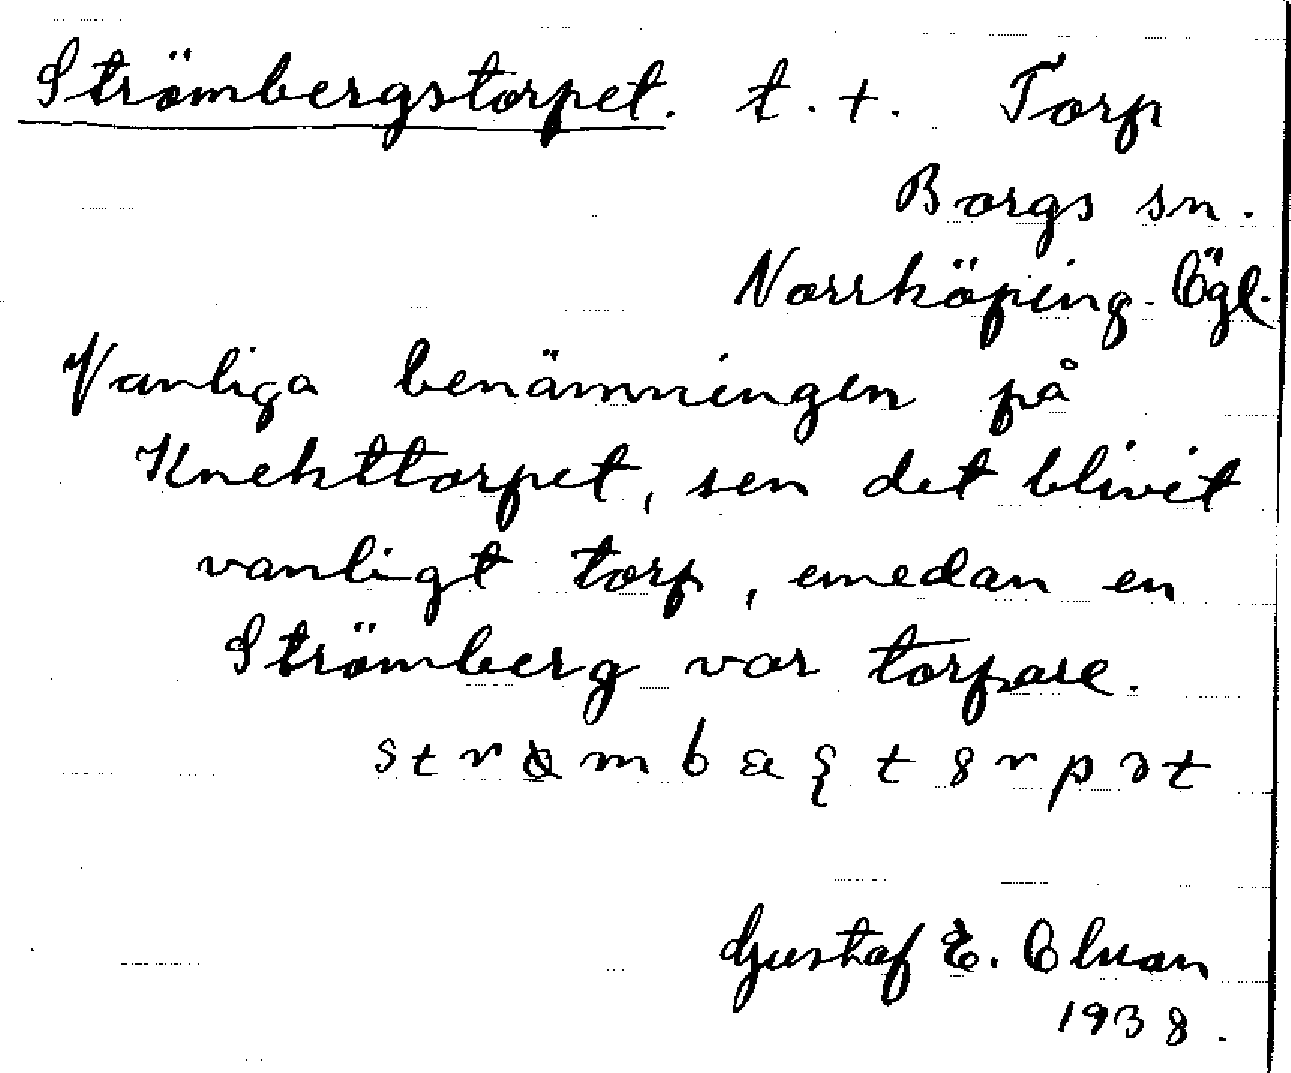 Strömbergstorpet. t. +. Torp
Borgs sn.
Norrköping. Ögl.
Vanliga benämningen på
Knekttorpet, sen det blivit
vanligt torp, emedan en
Strömberg var torpare.
Gustaf E. Olson
1938.